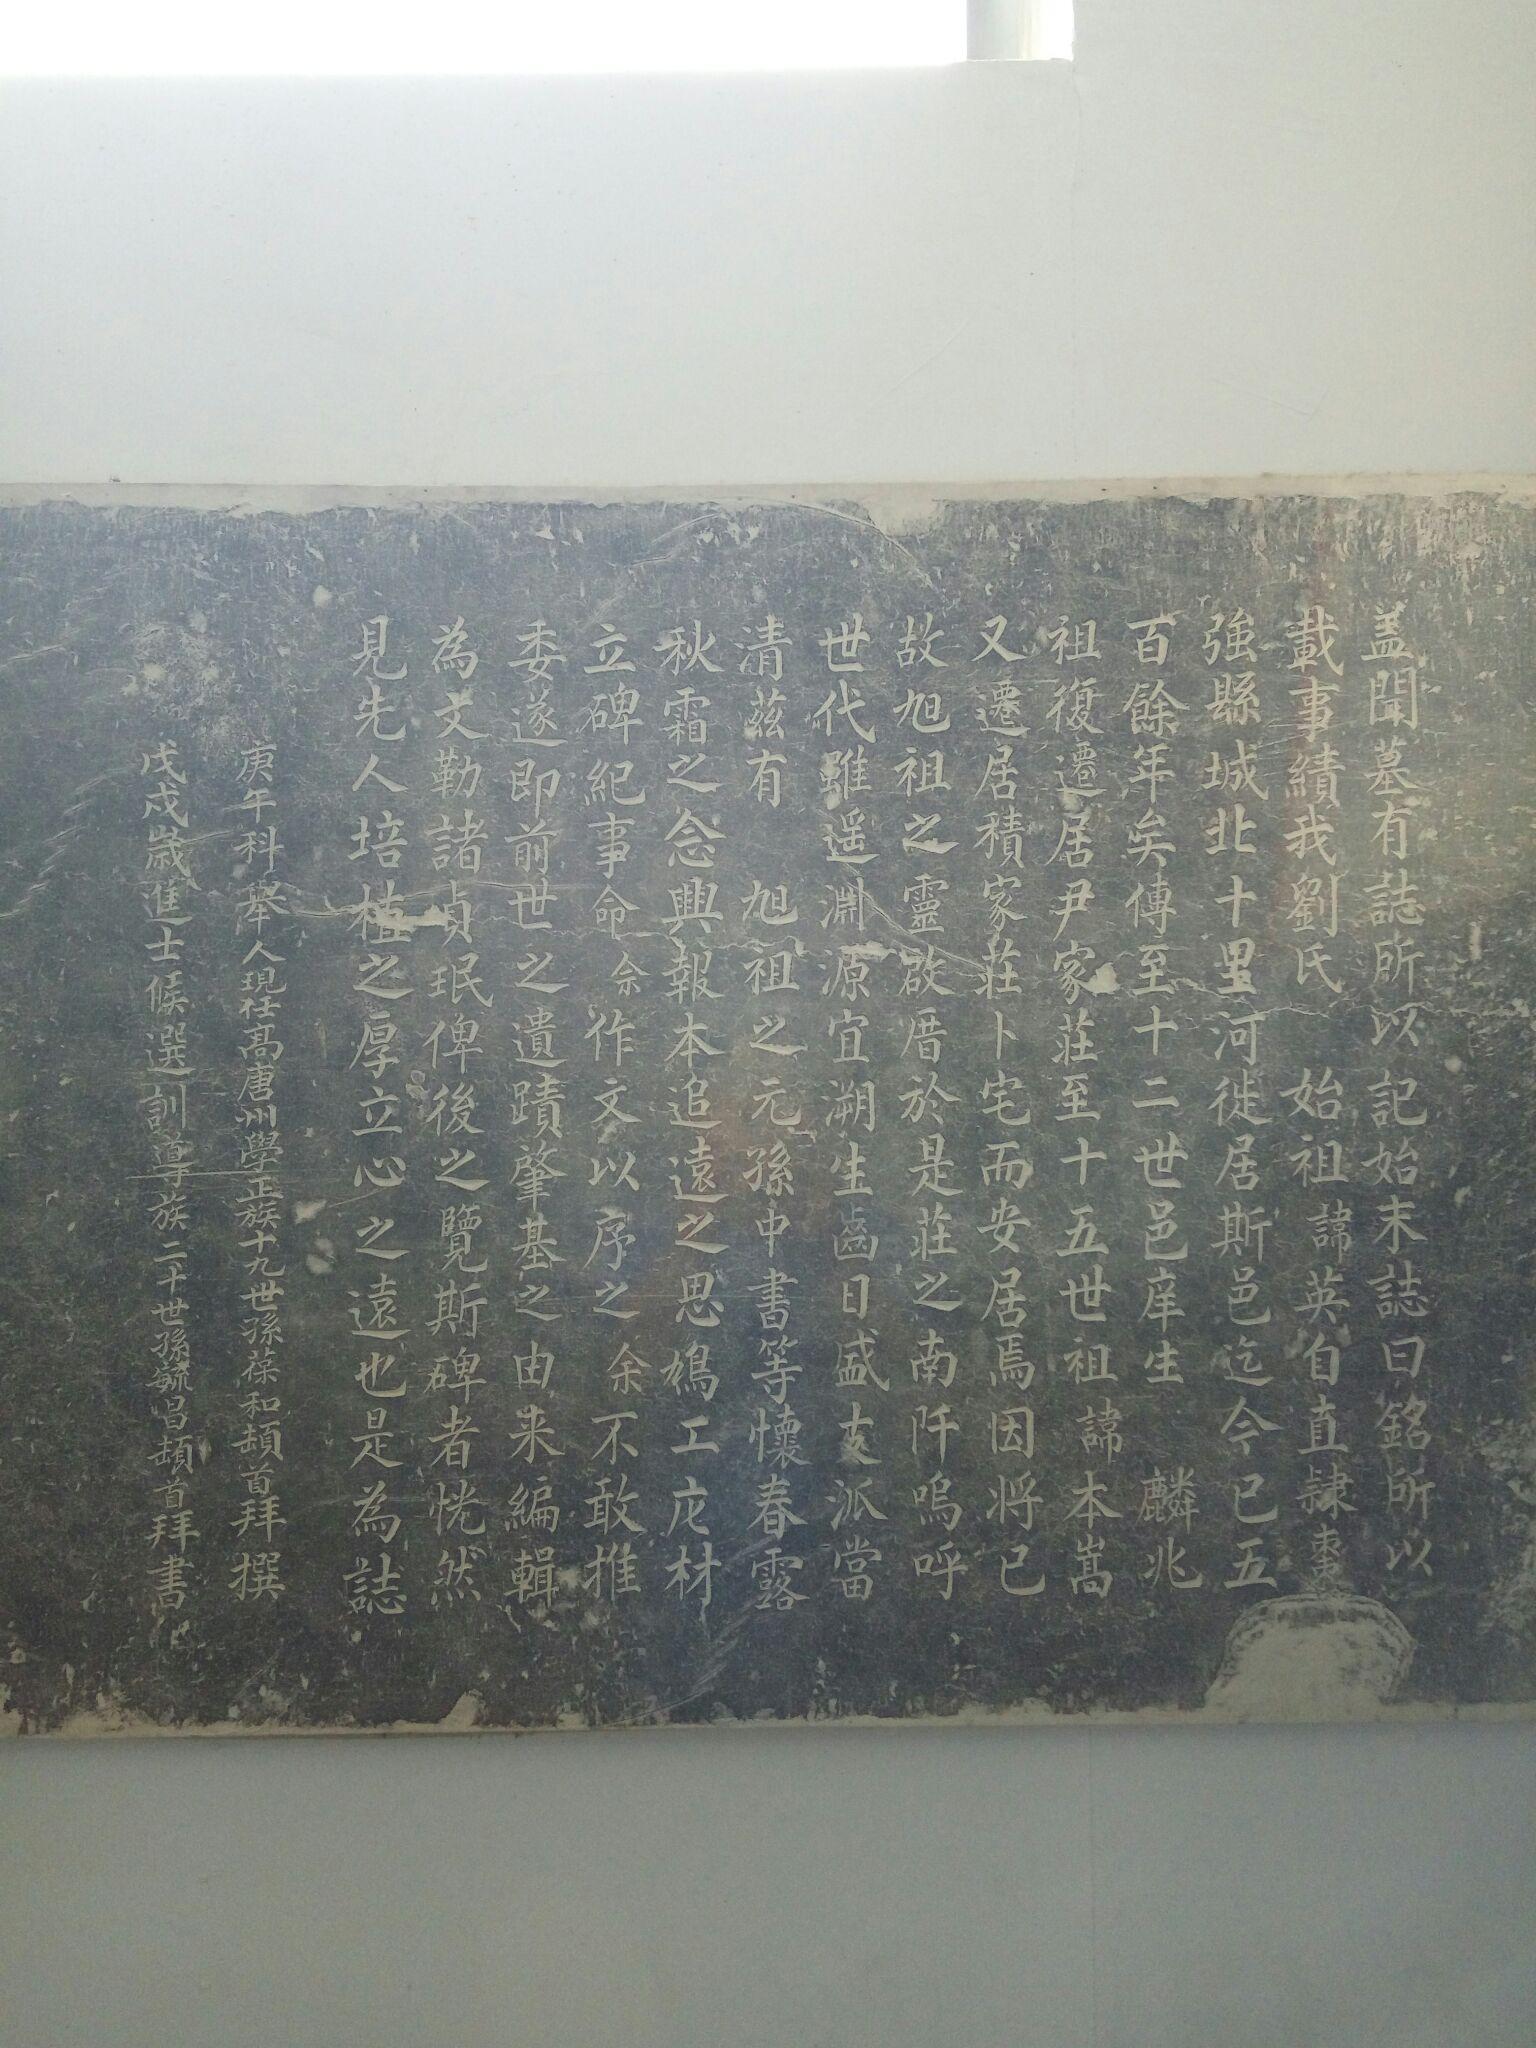 盖聞墓有誌所以記始末誌曰銘所以
載事績我劉氏 始祖諱英自直隸棗
強縣城北十里河徙居斯邑迄今已五
百餘年矣傳至十二世邑庠生 麟兆
祖復遷居尹家莊至十五世祖諱本嵩
又遷居積家莊卜宅而安居焉因將已
故旭祖之靈啟厝於是莊之南阡嗚呼
世代雖遥淵源宜溯生齒日盛支派當
清茲有 旭祖之元孫中書等懷春露
秋霜之念興報本追遠之思鳩工庀材
立碑紀事命余作文以序之余不敢推
委遂即前世之遺蹟肇基之由来編輯
為文勒諸貞珉俾後之覽斯碑者恍然
見先人培植之厚立心之遠也是為誌
庚午科舉人現任髙唐州學正族十九世孫葆和頓首拜撰
戊戌歲進士候選訓導族二十世孫毓昌頓首拜書